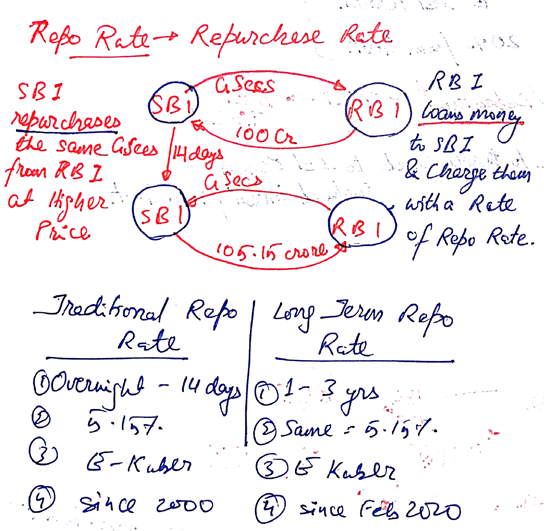 Repo Rate → Repurchese Rate
SBI
repurchases
the same GSecs
from RBI
at Higher
Price
SBI
GSecs
RBI
100 Cr
14 days
GSecs
SBI
RBI
105.15 crore
RBI
loans money
to SBI
& Charge them
with a Rate
of Repo Rate.
Traditional Repo
Rate
① Overnight - 14 days
② 5.15%.
③ E-Kuber
④ since 2000
Long Term Repo
Rate
① 1 - 3 yrs
② Same = 5.15%.
③ E Kuber
④ since Feb 2020